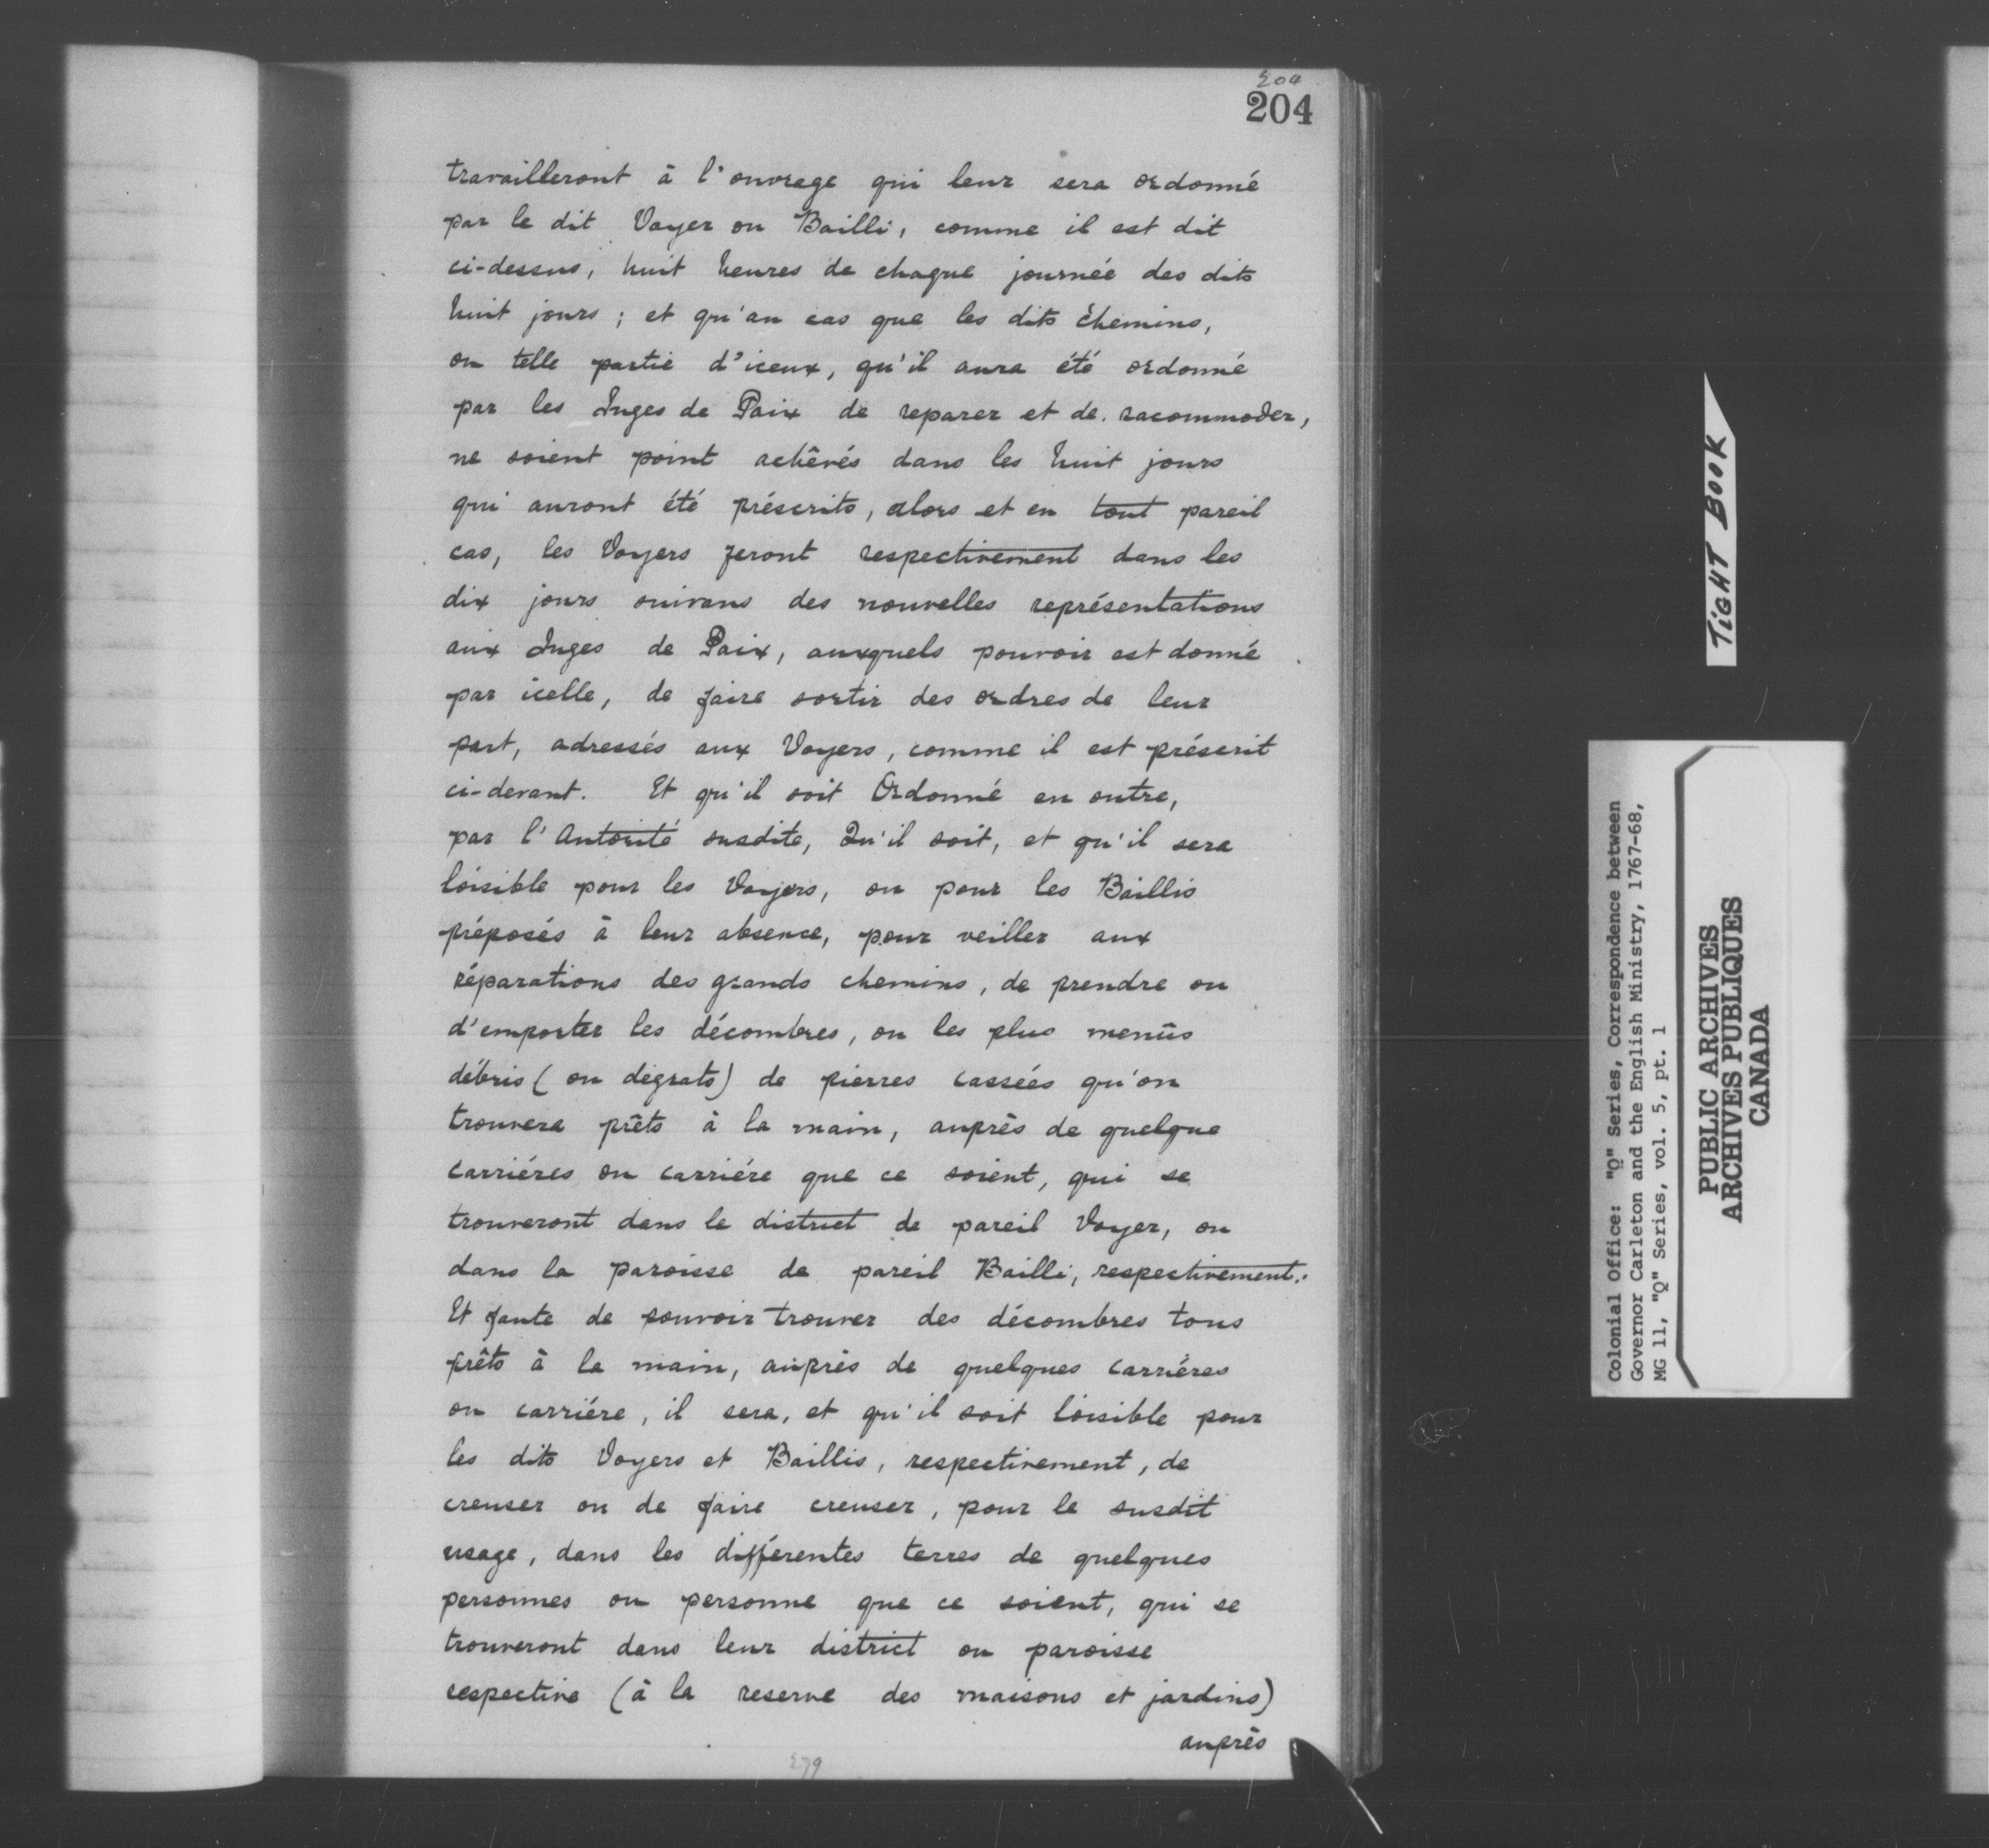 204
204
travailleront à l'ouvrage qui leur sera ordonné
par le dit Voyer ou Bailli, comme il est dit
ci-dessus, huit heures de chaque journée des dits
huit jours ; et qu'au cas que les dits chemins,
ou telle partie d'iceux, qu'il aura été ordonné
par les Juges de Paix de reparer et de racommoder,
ne soient point achêvés dans les huit jours
qui auront été préscrits, alors et en tout pareil
cas, les Voyers feront respectivement dans les
dix jours suivans des nouvelles représentations
aux Juges de Paix, auxquels pouvoir est donné
par icelle, de faire sortir des ordres de leur
part, adressés aux Voyers, comme il est préscrit
ci-devant. Et qu'il soit Ordonné en outre,
par l'Autorité susdite, Qu'il soit, et qu'il sera
loisible pour les Voyers, ou pour les Baillis
préposés à leur absence, pour veiller aux
réparations des grands chemins, de prendre ou
d'emporter les décombres, ou les plus menûs
débris (ou dégrats) de pierres cassées qu'on
trouvera prêts à la main, auprès de quelque
carriéres ou carriére que ce soient, qui se
trouveront dans le district de pareil Voyer, ou
dans la paroisse de pareil Bailli, respectivement:
Et faute de pouvoir trouver des décombres tous
prêts à la main, auprès de quelques carriéres
ou carriére, il sera, et qu'il soit loisible pour
les dits Voyers et Baillis, respectivement, de
creuser ou de faire creuser, pour le susdit
usage, dans les différentes terres de quelques
personnes ou personne que ce soient, qui se
trouveront dans leur district ou paroisse
respective (à la reserve des maisons et jardins)
auprès
279
TIGHT BOOK
Colonial Office: "Q" Series, Correspondence between
Governor Carleton and the English Ministry, 1767-68,
MG 11, "Q" Series, vol. 5, pt. 1
PUBLIC ARCHIVES
ARCHIVES PUBLIQUES
CANADA